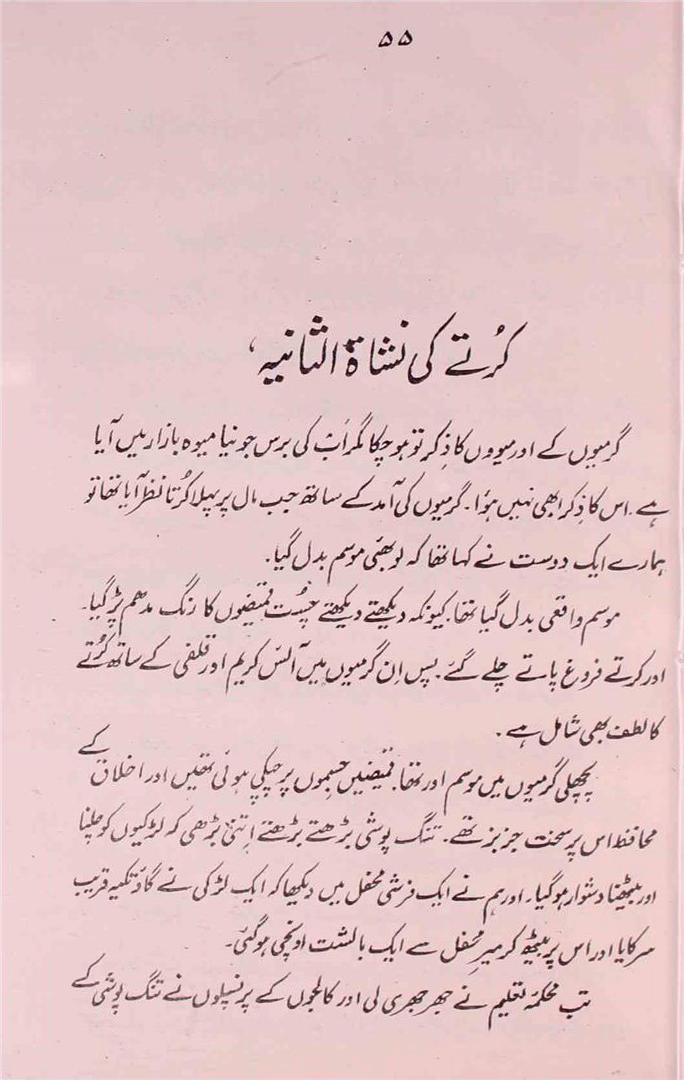 ۵۵
کرُتے کی نشاۃ الثانیہ،
گرمیوں کے اور میووں کا ذِکر تو ہو چکا مگر اَب کی برس جو نیا میوہ بازار میں آیا
ہے۔ اس کا ذِکر ابھی نہیں ہؤا۔ گرمیوں کی آمد کے ساتھ جب مال پر پہلا کُرتا نظر آیا تھا تو
ہمارے ایک دوست نے کہا تھا کہ لو بھئی موسم بدل گیا۔
موسم واقعی بدل گیا تھا۔ کیونکہ دیکھتے دیکھتے چسُت قمیضوں کا رنگ مدھم پڑ گیا۔
اور کرتے فروغ پاتے چلے گئے۔ پس اِن گرمیوں میں آئس کریم اور قلفی کے ساتھ کرُتے
کا لطف بھی شامل ہے۔
پچھلی گرمیوں میں موسم اور تھا۔ قمیضیں جسموں پر چپکی ہوئی تھیں اور اخلاق کے
محافظ اس پر سخت جزبز تھے۔ تنگ پوشی بڑھتے بڑھتے اِتنی بڑھی کہ لڑکیوں کو چلنا
اور بیٹھنا دشوار ہو گیا۔ اور ہم نے ایک فرشی محفل میں دیکھا کہ ایک لڑکی نے گاؤ تکیہ قریب
سرکایا اور اس پر بیٹھ کر میرِ محفل سے ایک بالشت اونچی ہو گئی۔
تب محکمہ تعلیم نے جھرجھری لی اور کالجوں کے پرنسپلوں نے تنگ پوشی کے